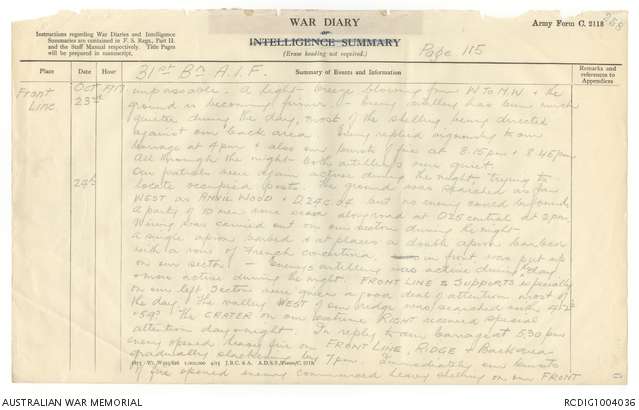 WAR DIARY
or
INTELLIGENCE SUMMARY
(Erase heading not required.)
Army Form C. 2118
258
Instructions regarding War Diaries and Intelligence
Summaries are contained in F. S. Regs., Part II.
and the Staff Manual respectively. Title Pages
will be prepared in manuscript.
Page 115
31st Bn A.I.F.
Place
Date
Hour
Summary of Events and Information
Remarks and
references to
Appendices
Front
Line
Oct 1917
23rd
impassable. A light breeze blowing from W to N.W. & the
ground is becoming firmer. Enemy artillery has been much
quieter during the day, most of the shelling being directed
against our back area. Enemy replied vigorously to our
barrage at 4pm & also our bursts of fire at 8.15pm & 8.45pm
All through the night both artillery's were quiet.
24th
Our patrols were again active during the night trying to
locate occupied posts. The ground was searched as far
WEST as ANVIL WOOD & D.24.C.04 but no enemy could be found.
A party of 10 men were seen along road at D25 central at 2pm.
Wiring was carried out on our sectors during the night
a single apron barbed & at places a double apron barbed
with a row of French concertina in front was put up
on our sector. - Enemys artillery was active during day
& more active during the night. FRONT LINE & SUPPORTS especially
on our left Sector were given a good deal of attention most of
the day. The valley WEST of our ridge was searched with 4.2"
& 5.9". The CRATER on our extreme RIGHT received special
attention day & night. In reply to our barrage at 5.30 pm
enemy opened heavy fire on FRONT LINE, RIDGE & Back area
gradually slackening by 7pm. Immediately our bursts
of fire opened enemy commenced heavy shelling on our FRONT
AUSTRALIAN WAR MEMORIAL
RCDIG1004036